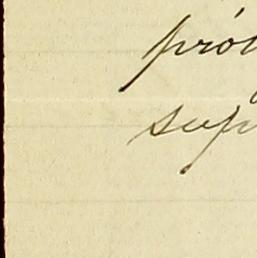 pró
sup